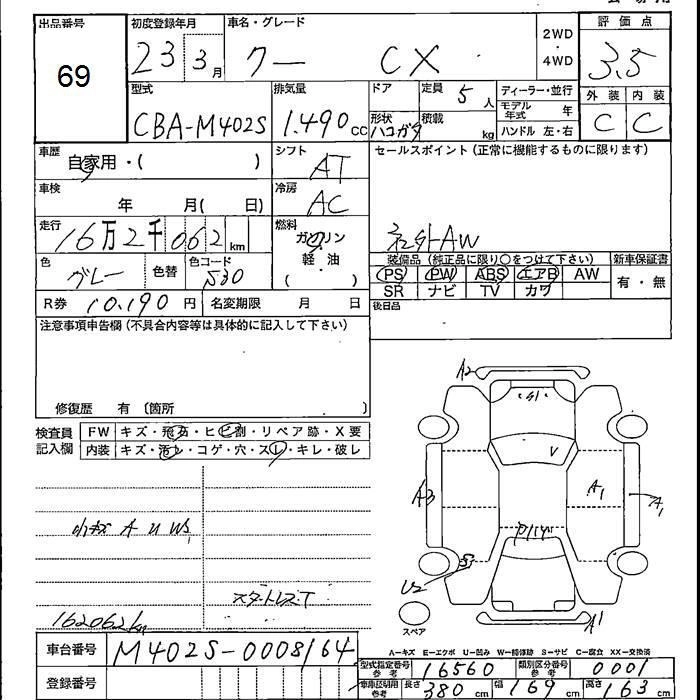 出品番号
69
初度登録年月
23 3月
車名・グレード
クー CX
2WD
・
4WD
評価点
3.5
外装 内装
C C
型式
CBA-M402S
排気量
1.490cc
ドア
形状
ハコガタ
定員 5人
積載 kg
ディーラー・並行
モデル年式 年
ハンドル 左・右
車歴
自家用・( )
シフト
AT
車検
年 月( 日)
冷房
AC
走行
16万2千062km
燃料
ガソリン
軽・油
( )
色
グレー
色替
色コード
S30
R券 10,190円
名変期限 月 日
セールスポイント(正常に機能するものに限ります)
社外AW
装備品(純正品に限り○をつけて下さい)
PS PW ABS エアB AW
SR ナビ TV カワ
新車保証書
有・無
後日品
注意事項申告欄(不具合内容等は具体的に記入して下さい)
修復歴 有〔箇所 〕
検査員
記入欄
FW キズ・飛石・ヒビ割・リペア跡・X要
内装 キズ・汚レ・コゲ・穴・スレ・キレ・破レ
小キズ A U W1
スタッドレスT
162062km
A2
S1
V
A3
A1
A1
P
S
U2
A1
スペア
A－キズ E－エクボ U－凹み W－補修跡 S－サビ C－腐食 XX－交換済
車台番号 M402S-0008164
登録番号
型式指定番号 参考 16560
類別区分番号 参考 0001
車庫証明用 参考 長さ 380cm 幅 169cm 高さ 163cm